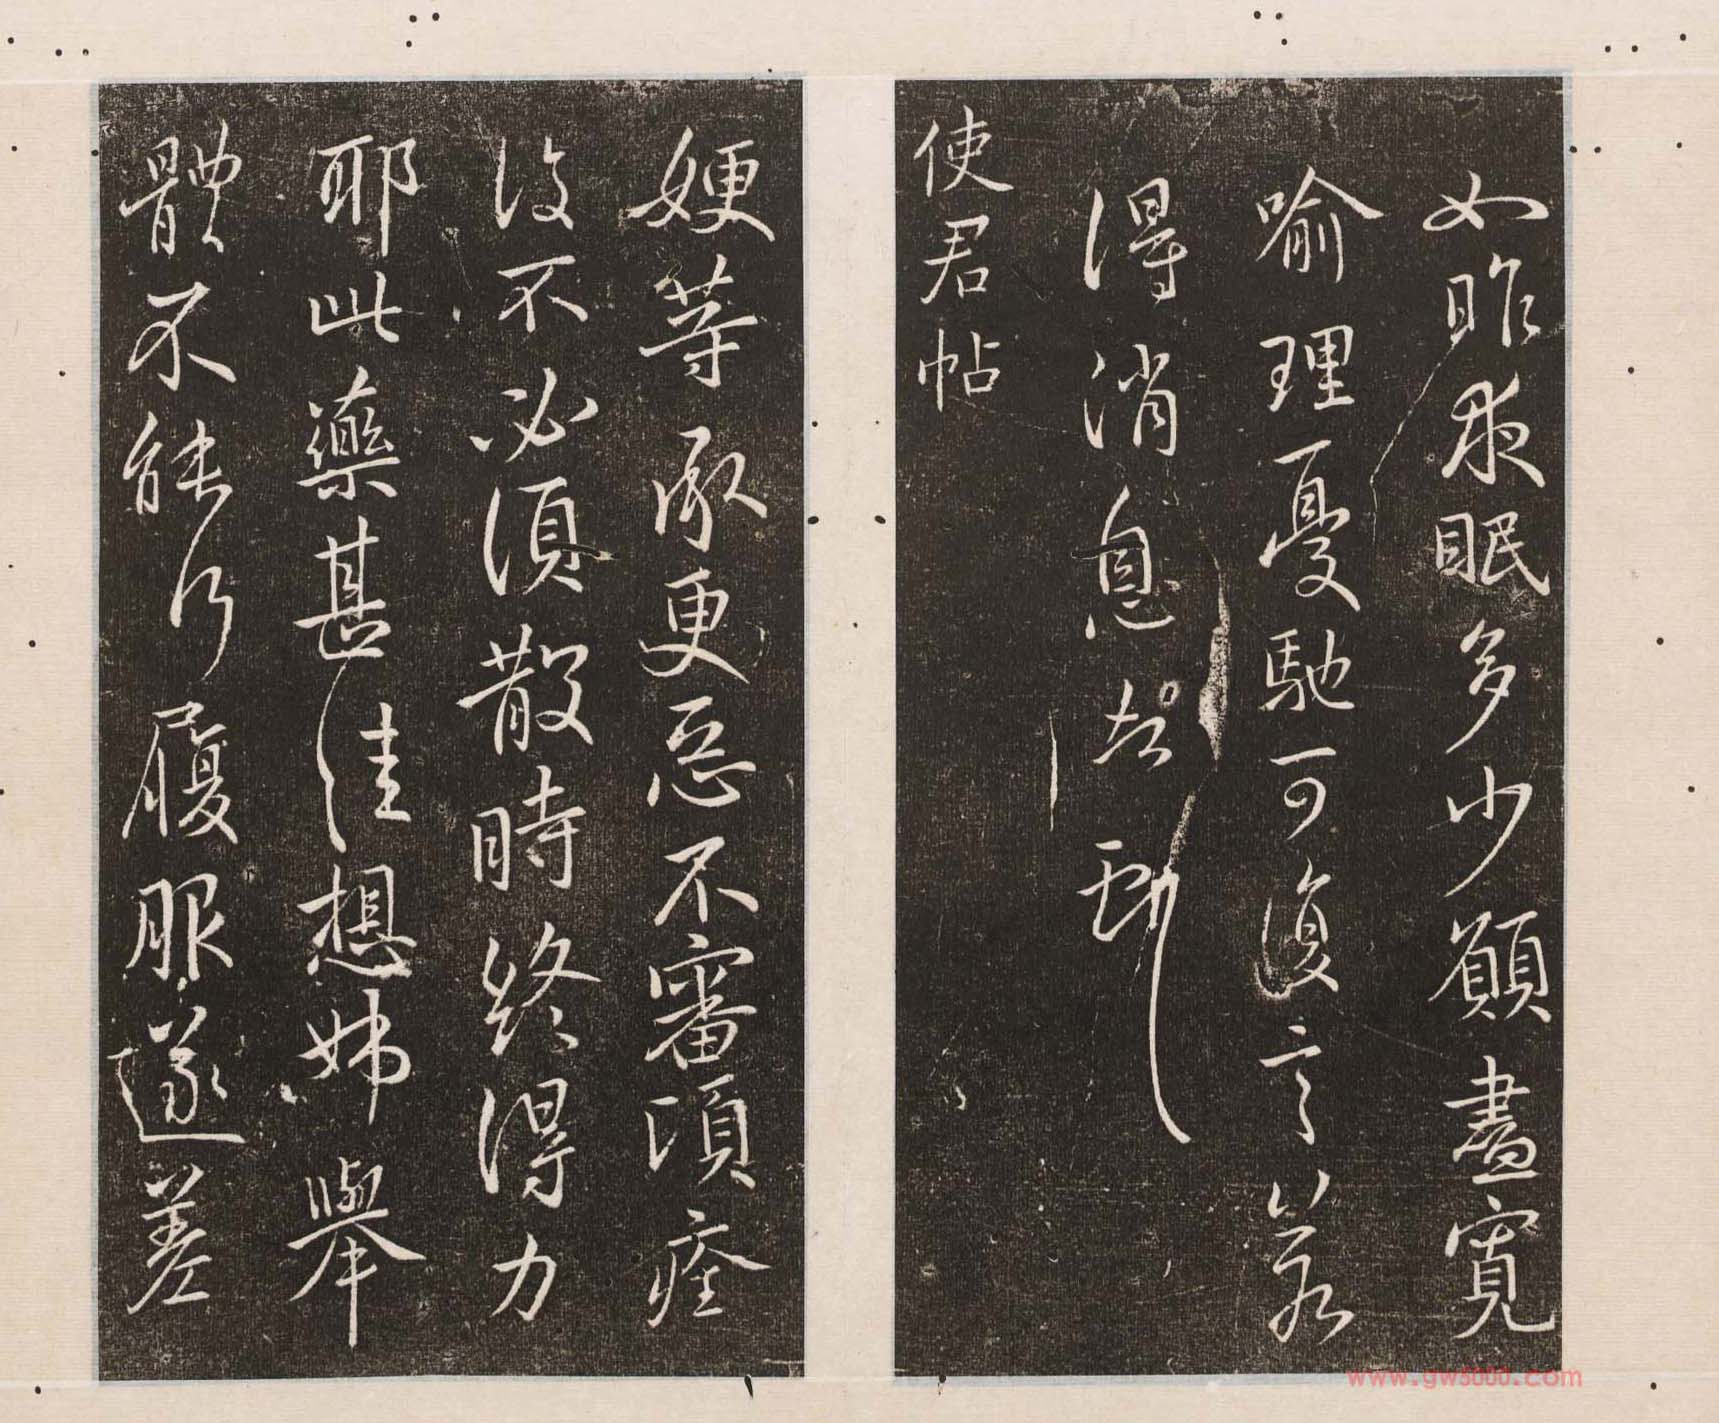 如昨夜眠多少願盡寬
喻理憂馳可復言若
得消息告
使君帖
㛐等承更惡不審頃痊
復不必須散時終得力
耶此藥甚佳想姊舉
體不能行履眠遂差
www.gw5000.com